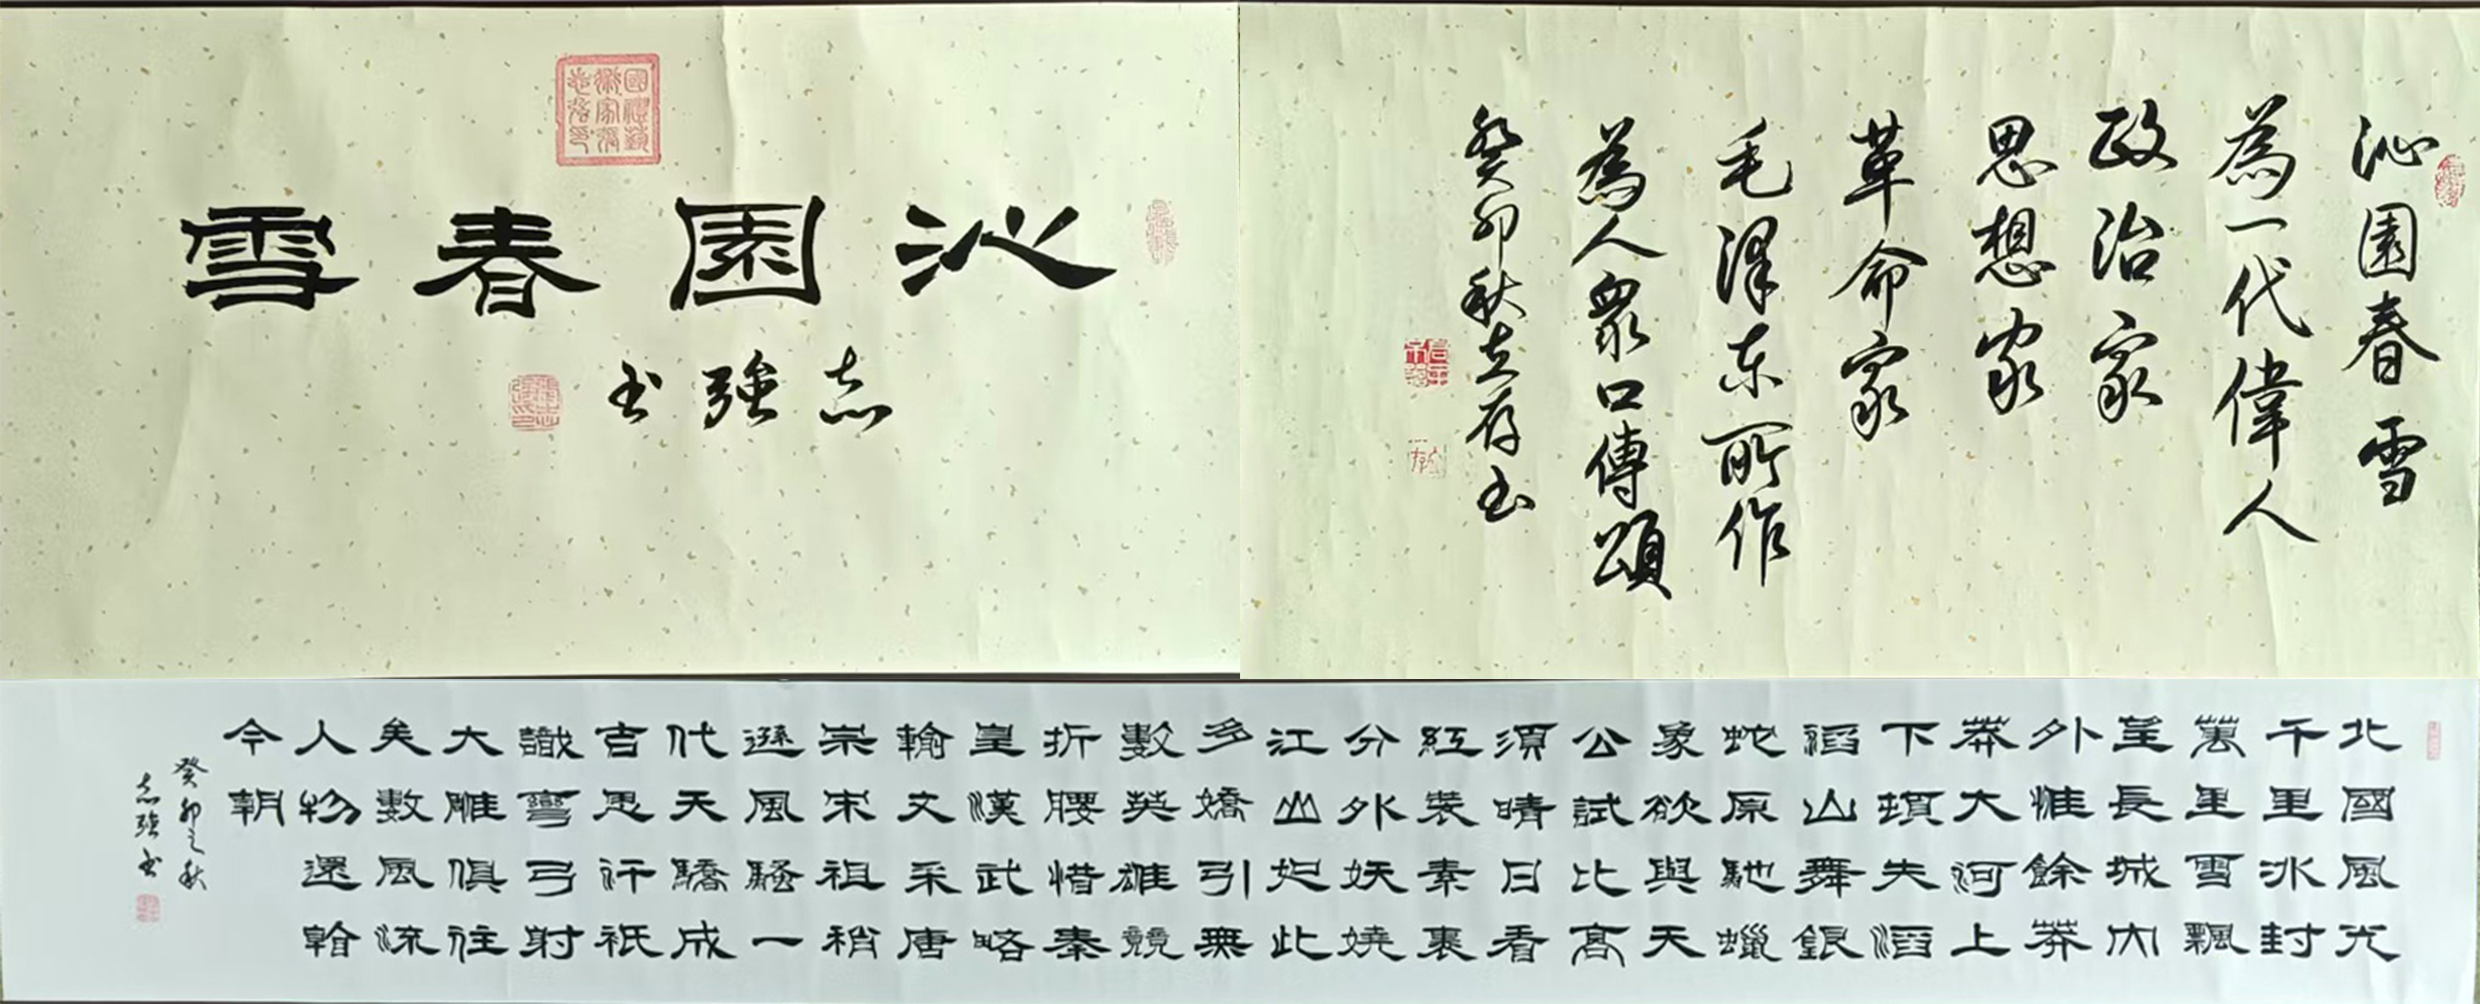 沁園春雪
志強书
國禮藝術家張志強印
張志強印
沁園春雪
為一代偉人
政治家
思想家
革命家
毛澤东所作
為人衆口傳頌
癸卯秋立存书
北國風光
千里冰封
萬里雪飄
望長城內
外惟餘莽
莽大河上
下頓失滔
滔山舞銀
蛇原馳蠟
象欲與天
公試比高
須晴日看
紅裝素裹
分外妖嬈
江山如此
多嬌引無
數英雄競
折腰惜秦
皇漢武略
輸文采唐
宗宋祖稍
遜風騷一
代天驕成
吉思汗祇
識彎弓射
大雕俱往
矣數風流
人物還看
今朝
癸卯之秋
志強书